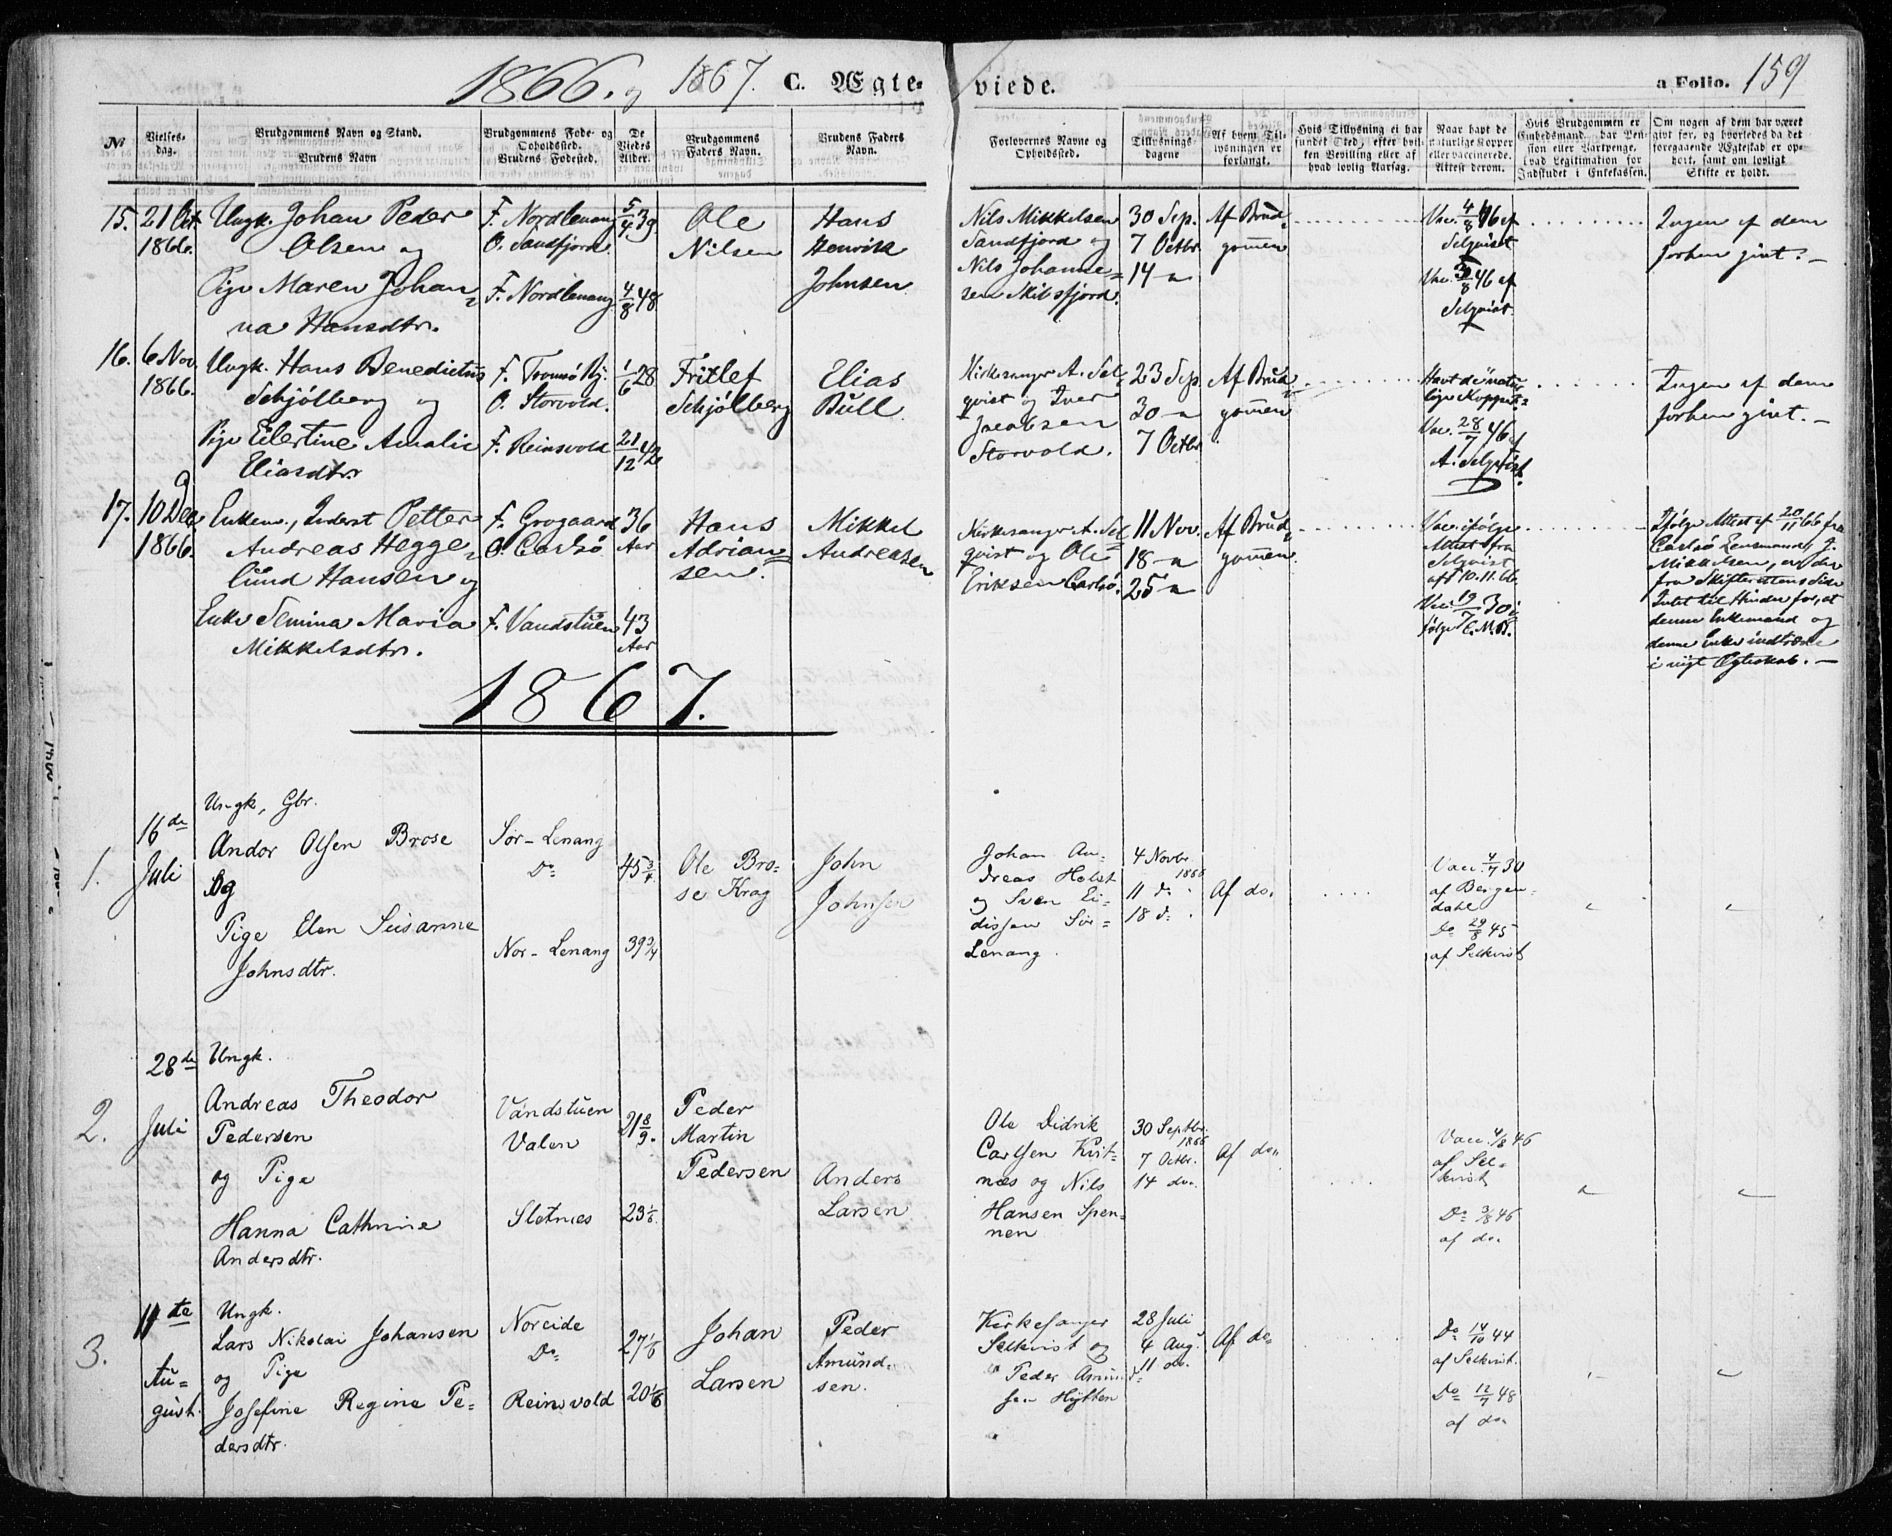 1866. og 1867. C. Ægteviede. a Folio. 159
No
Vielsesdag.
Brudgommens Navn og Stand.
Brudens Navn
Brudgommens Føde- og Opholdssted.
Brudens Fødested.
De Viedes Alder.
Brudgommens Faders Navn.
Brudens Faders Navn.
Forlovernes Navne og Opholdssted.
Tillysningsdagene
Af hvem Tillysningen er forlangt.
Hvis Tillysning ei har fundet Sted, efter hvilken Bevilling eller af hvad lovlig Aarsag.
Naar havt de naturlige Kopper eller vaccinerede. Attest derom.
Hvis Brudgommen er Embedsmand, har Pension eller Vartpenge, hvad Legitimation for Indskudet i Enkekassen.
Om nogen af dem har været givt før, og hvorledes da det foregaaende Ægteskab er ophørt, samt om lovligt Skifte er holdt.
15.
21 Oct
1866.
Ungk. Johan Peder
Olsen og
Pige Maren Johan-
na Hansdtr.
F. Nordlenang
O. Sandfjord.
F. Nordlenang
5/4 39
4/8 48
Ole
Nilsen
Hans
Henrik
Johnsen
Nils Mikkelsen
Sandfjord og
Nils Johanne-
sen
30 Sep.
7 Octbr
14 -"-
Af Brud-
gommen
Vac. 4/8 46 af
Selqvist
Vac. 46 af
Selqvist
Ingen af dem
forhen givt. -
16.
6 Nov.
1866.
Ungk. Hans Benedictus
Schjölberg og
Pige Eilertine Amalie
Eliasdtr.
F. Tromsø By.
O. Storvold.
F. Reinsvold
1/6 28
21/12 42
Fritlef
Schjölberg
Elias
Bull
Kirkesanger A. Sel-
qvist og Iver
Jacobsen
Storvold.
23 Sep
30 -"-
7 Octbr
Af Brud-
gommen
Havt de natur-
lige Kopper.
Vac. 28/7 46 af
A. Selqvist.
Ingen af dem
forhen givt. -
17.
10 Dec
1866.
Enkem., Inderst Petter
Andreas Hegge-
lund Hansen og
Enke Semina Maria
Mikkelsdtr.
F. Grogaard
O. Carlsø
F. Vandstuen
36
Aar
43
Aar
Hans
Adrian-
sen.
Mikkel
Andreasen
Kirkesanger A. Sel-
qvist og Ole
Eriksen Carlsø.
11 Nov.
18 -"-
25 -"-
Af Brud-
gommen.
Vac. ifølge
Attest fra
Selqvist
aff 10.11.66
Vac. 19/7 30 i-
følge
Ifølge Attest af 20/11 66 fra
Carlsø Lensmand, J.
Mikkelsen, er der
fra Skifterettens Side
Intet til Hinder for, at
denne Enkemand og
denne Enke indtræde
i nyt Egteskab. -
1867.
1.
16de
Juli
Ungk, Gbr.
Andor Olsen Brose
Og
Pige Elen Susanne
Johnsdtr.
Sør-Lenang
Do
Nor-Lenang
45 3/4
39 3/4
Ole Bro-
se Krog
John
Johnsen
Johan An-
dreas Holst
og Sven Ei-
dissen Sør-
Lenang.
4 Novbr.
1866
11 do
18 do.
Af do.
Vacc. 4/7 30
af Bergen-
dahl
Do 29/8 45
af Selkvist
2.
28de
Juli
Ungk.
Andreas Theodor
Pedersen
og Pige
Hanna Cathrine
Andersdtr.
Vandstuen
Valen
Sletnæs
21 8/9.
23 1/6.
Peder
Martin
Pedersen
Anders
Larsen
Ole Didrik
Carlsen Kvit-
næs og Nils
Hansen Spen-
nen
30 Septbr.
1866
7 Octbr.
14 do.
Af do.
Vacc. 4/8 46
af Sel-
kvist
Do 3/8 46
af do.
3.
11te
Au-
gust.
Ungk.
Lars Nikolai Johansen
og Pige
Josefine Regine Pe-
dersdtr.
Noreide
Do
Reinsvold
27 1/6
20 1/6
Johan
Larsen
Peder
Amund-
sen.
Kirkesanger
Selkvist og
Peder Amun-
sen Hytten
28 Juli
4 Aug.
11 do.
Af do.
Do 14/10 44
af Selkvist.
Do 12/7 48
af do.